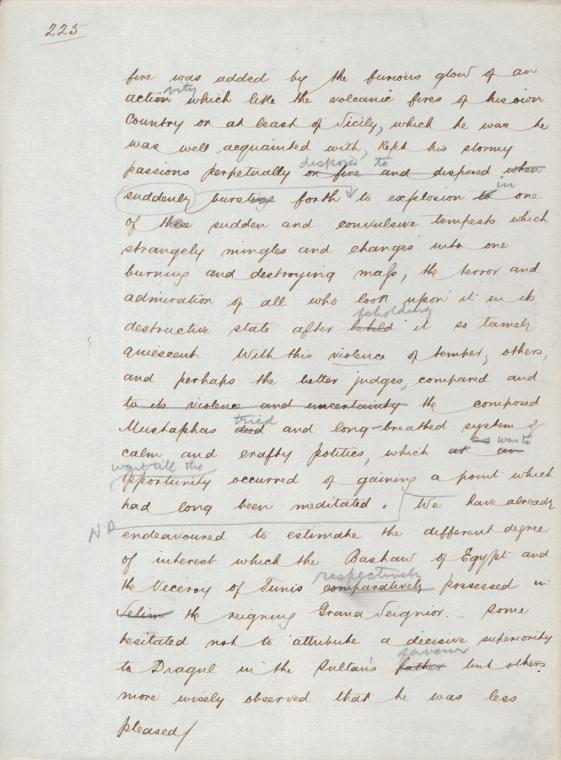 225
fire was added by the furious glow of an
vity
action which like the volcanic fires of his own
Country or at least of Sicily, which he was he
was well acquainted with, kept his stormy
disposed to
passions perpetually on fire and disposed when
in
suddenly bursting forth to explosion to one
of those sudden and convulsive tempests which
strangely mingles and changes into one
burning and destroying mass, the terror and
admiration of all who look upon it in its
beholding
destructive state after beheld it so tamely
quiescent. With this violence of temper, others,
and perhaps the better judges, compared and
to its violence and uncertainty the composed
tried
Mustaphas and long-breathed system of
calm and crafty politics, which at an
wait till the
opportunity occurred of gaining a point which
had long been meditated. We have already
NP
endeavoured to estimate the different degree
of interest which the Bashaw of Egypt and
respectively
the Viceroy of Tunis comparatively possessed in
Selim the reigning Grand Seignior. Some
hesitated not to attribute a decisive superiority
favour
to Dragul in the Sultan's father but others
more wisely observed that he was less
pleased/